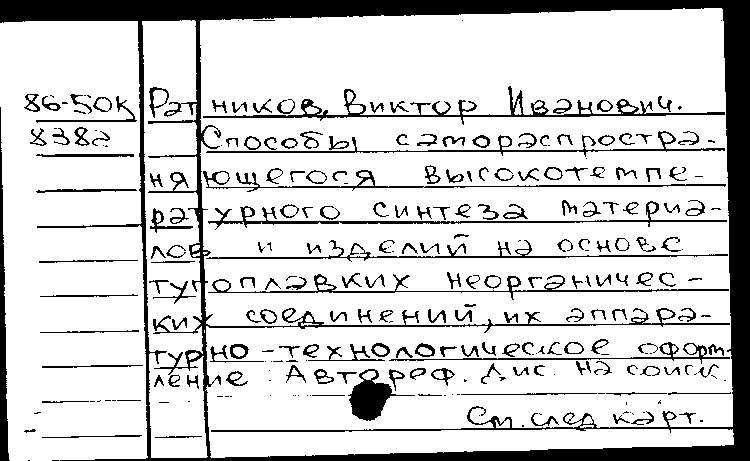 86-50к Ратников, Виктор Иванович.
8382 Способы самораспростра-
няющегося высокотемпе-
ратурного синтеза материа-
лов и изделий на основе
тугоплавких неорганичес-
ких соединений, их аппара-
турно-технологическое оформ-
ление. Автореф. дис. на соиск.
См. след. карт.